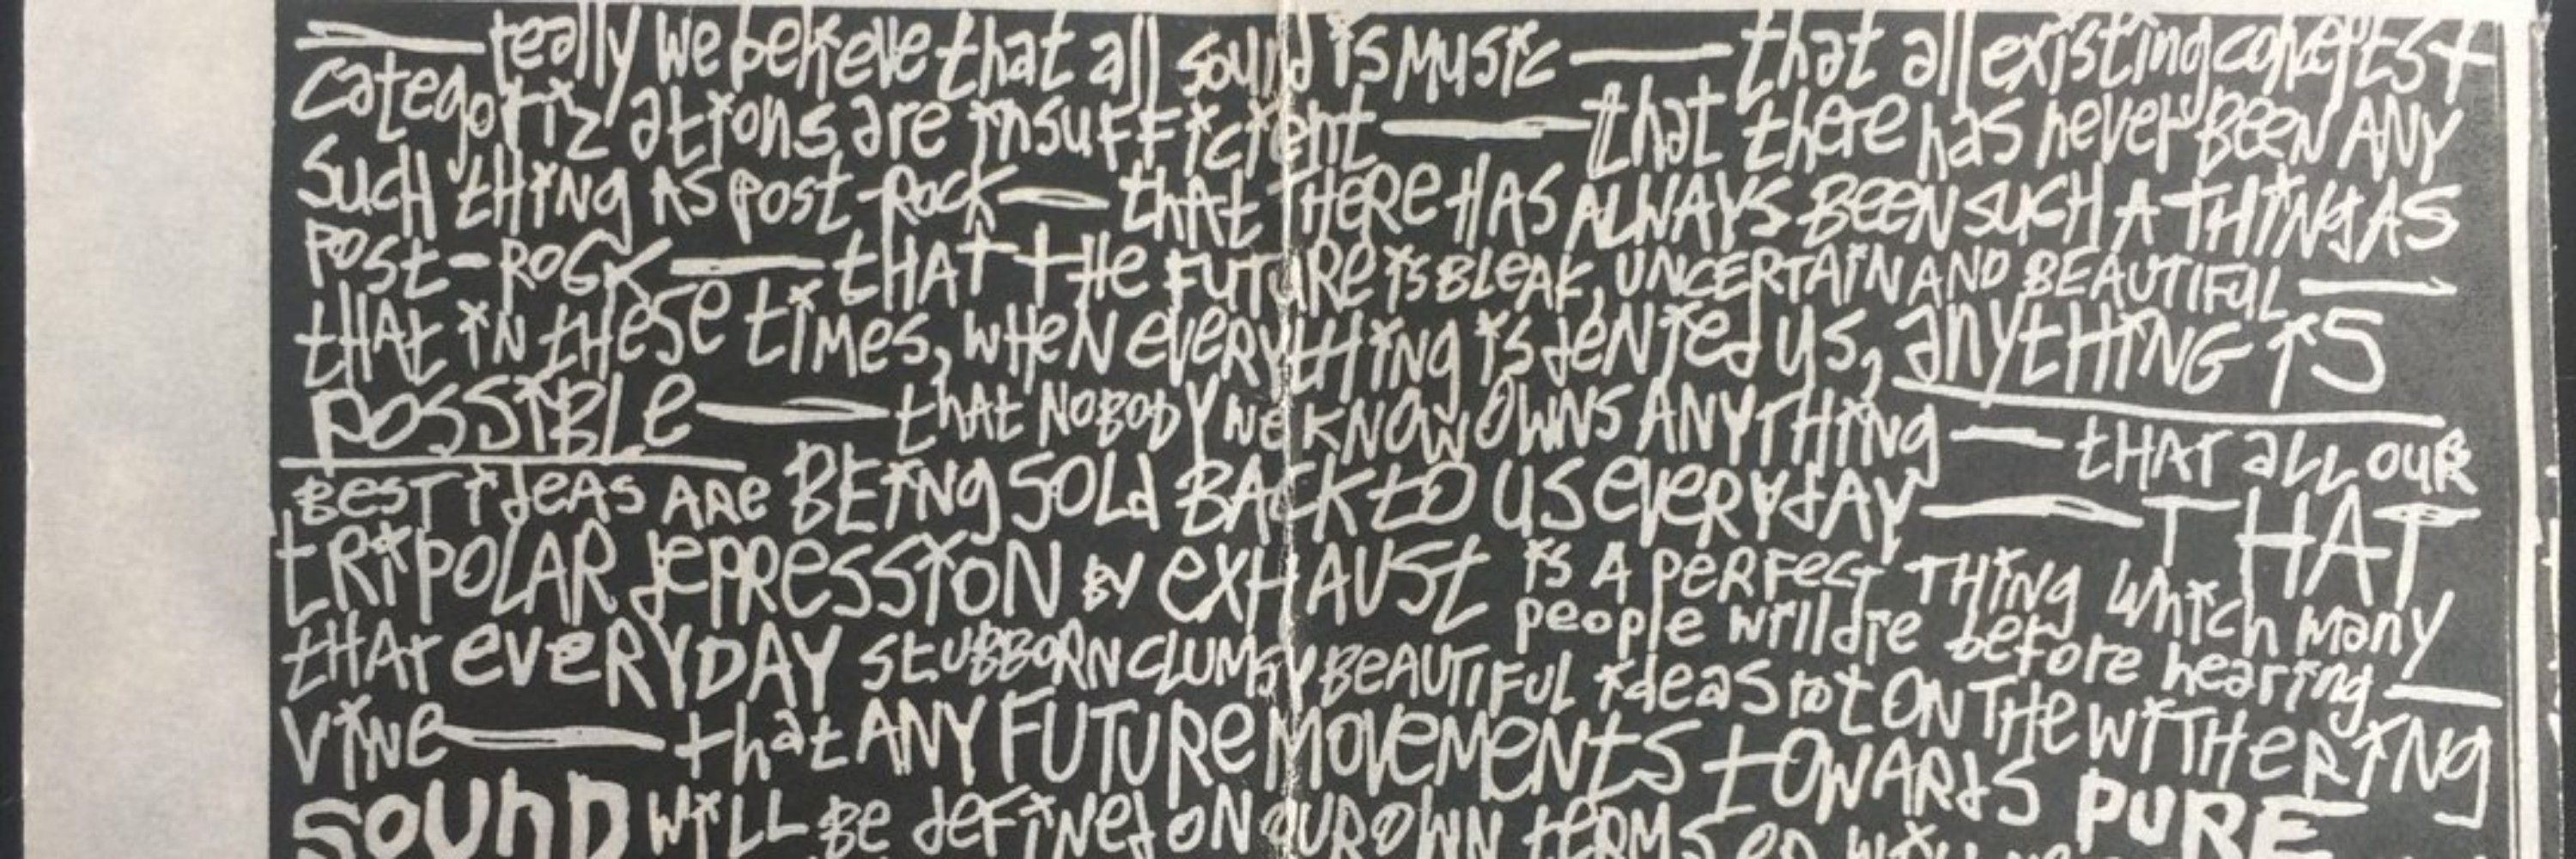 — really we believe that all sound is music — that all existing concepts +
categoriz ations are insufficient — that there has never BEEN ANY
SUCH tHiNg AS post-Rock — tHAt tHERe HAS ALWAYS BEEN SUCH A THiNg AS
POST-ROCK — tHAT tHe FUTURe is BLeAK, UNCERTAiN AND BEAUTIFUL —
tHAt iN tHeSe tiMes, wHeN eveRytHiNg is deNied us, anytHiNG iS
POSSiBLe — tHAt NOBODY We KNOW OWNS ANYTHiNg — tHAT aLL OUR
BesT ideAS ARe BEiNg SOLd BACK tO US eveRYdAY — THAT
tRiPOLAR dePReSSiON BY eXHAUSt is A PeRFecT THiNg which many
people will die before hearing —
tHAt eveRYDAY stUBBORN CLUMSY BEAUTiFUL ideas rot ON THe wiTHeRiNg
ViNe — that ANY FUTURe MOVeMeNtS tOWARdS PURE
SOUND WiLL Be deFiNed ON OUR OWN teRMS